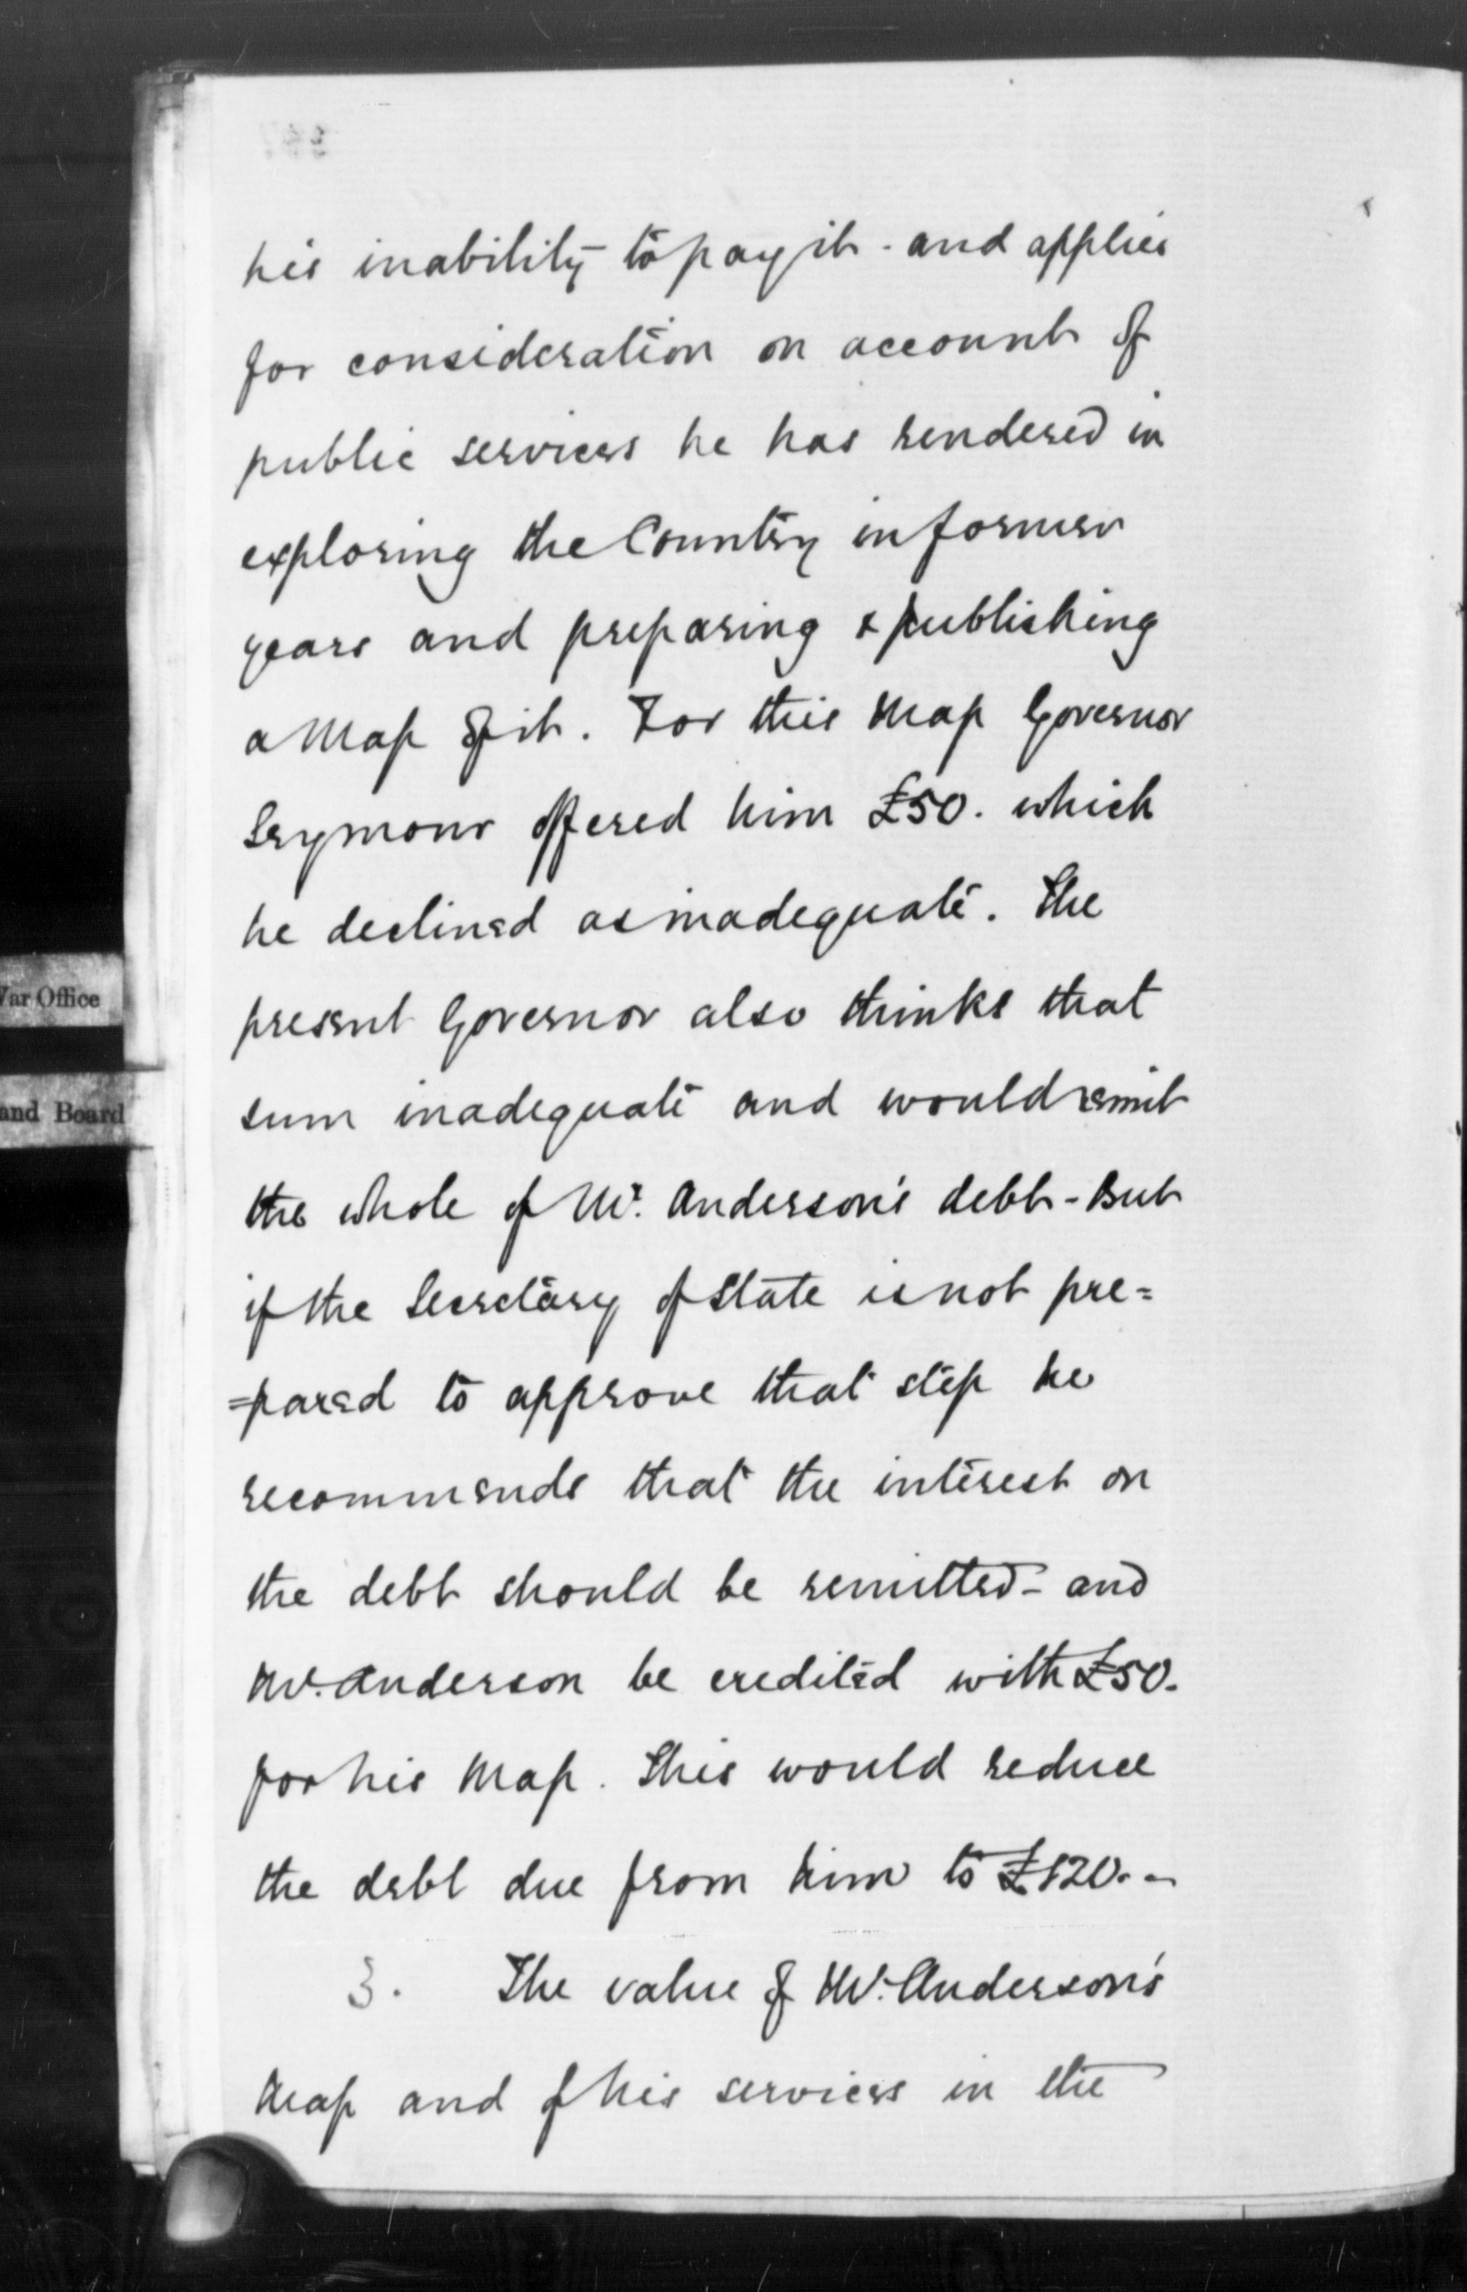 his inability to pay it - and applies
for consideration on account of
public services he has rendered in
exploring the Country in former
years and preparing & publishing
a Map of it. For this Map Governor
Seymour offered him £50. which
he declined as inadequate. The
present Governor also thinks that
sum inadequate and would remit
the whole of Mr. Anderson's debt - But
if the Secretary of State is not pre=
=pared to approve that step he
recommends that the interest on
the debt should be remitted - and
Mr. Anderson be credited with £50.
for his Map. This would reduce
the debt due from him to £120. -
3. The value of Mr. Anderson's
Map and of his services in the
War Office
and Board